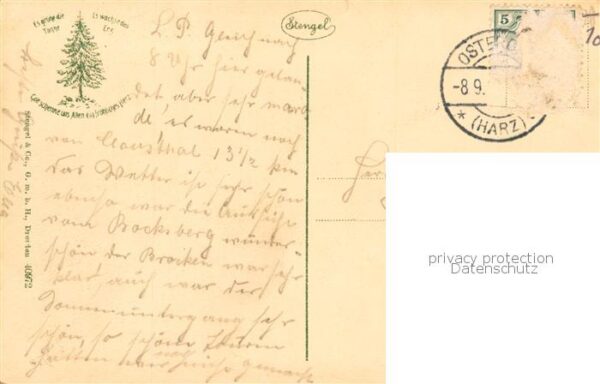 Es grüne die
Tanne
Es wachse das
Erz
Gott schenke uns Allen ein fröhliches Herz
Stengel
5
OSTERODE
-8 9.
* (HARZ)
L. P. Gleich nach
8 Uhr hier gelan-
det, aber sehr marö
de, es waren noch
von Clausthal 13 1/2 km
das Wetter ist sehr schön
ebenso war die Aussicht
vom Bocksberg wunder-
schön der Brocken war sehr
klar, auch war der
Sonnenuntergang sehr
schön, so schöne Touren
hatten wir noch nicht gemacht
Stengel & Co., G. m. b. H., Dresden 40672
privacy protection
Datenschutz